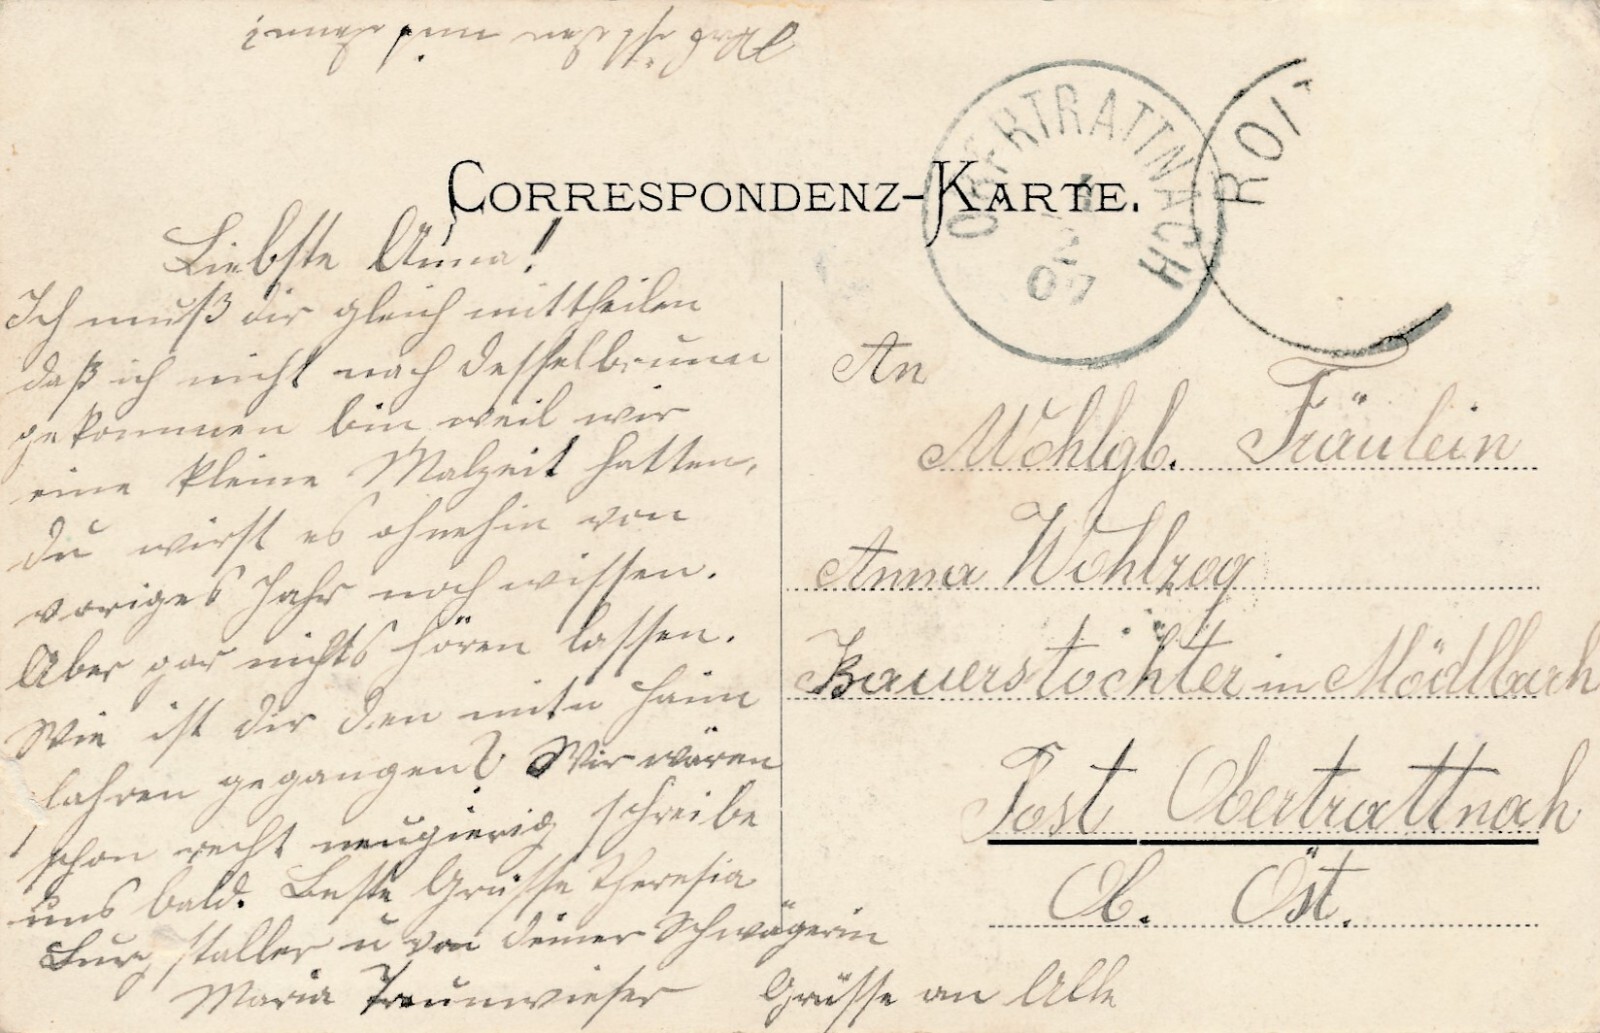 CORRESPONDENZ-KARTE.
OBERTRATTNACH
2
07
ROI
Liebste Anna!
Ich muß dir gleich mittheilen
daß ich nicht nach Desselbrunn
gekommen bin weil wir
eine kleine Malzeit hatten,
du wirst es ohnehin von
voriges Jahr noch wissen.
Aber gar nichts hören lassen.
Wie ist dir den mitn haim
fahren gegangen? Wir wären
schon recht neugierig schreibe
uns bald. Beste Grüsse Theresia
staller u von deiner Schwägerin
Maria Traunwieser Grüsse an Alle
An
Wohlgb. Fräulein
Anna Wohlzog
Bauerstochter in Mödlbach
Post Obertrattnah
Ob. Öst.